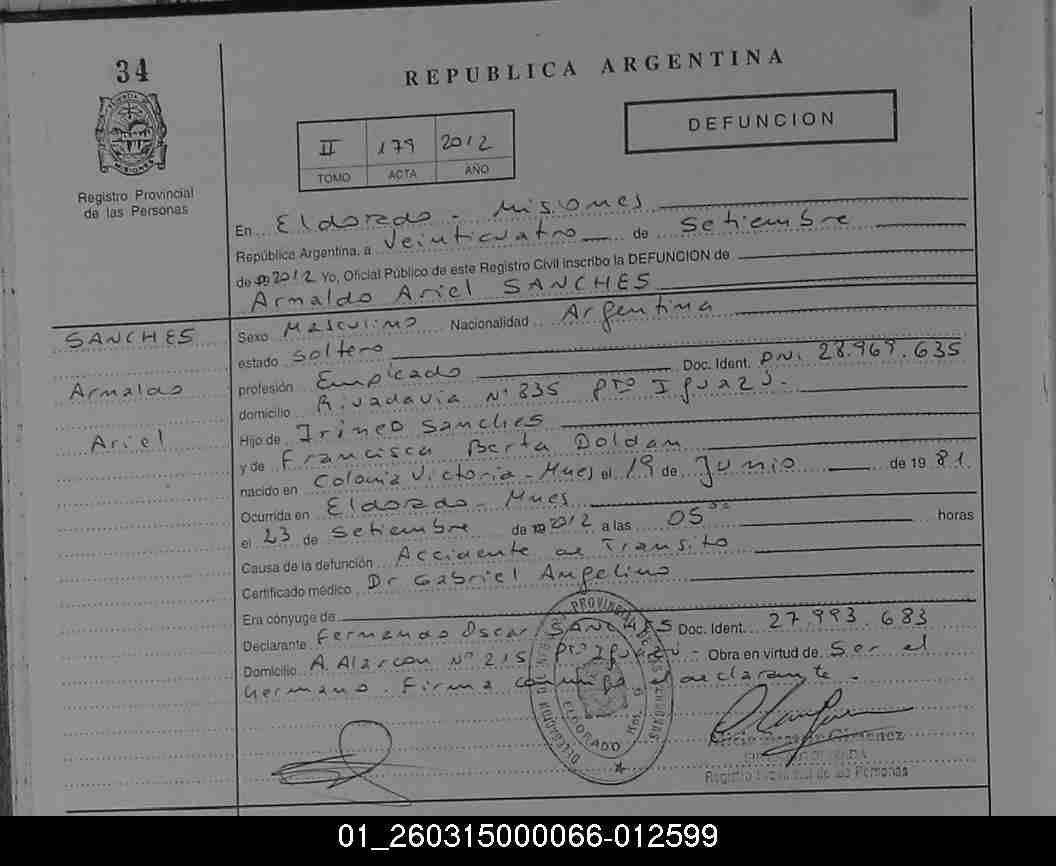 34
REPUBLICA ARGENTINA
DEFUNCION
II 179 2012
TOMO ACTA AÑO
Registro Provincial
de las Personas
En Eldorado - Misiones
República Argentina, a Veinticuatro de Setiembre
de 2012 Yo, Oficial Público de este Registro Civil inscribo la DEFUNCION de
Arnaldo Ariel SANCHES
SANCHES
Arnaldo
Ariel
Sexo Masculino Nacionalidad Argentina
estado soltero Doc. Ident. DNI 28.969.635
profesión Empleado
domicilio Rivadavia Nº 835 Pto Iguazú.
Hijo de Irineo Sanches
y de Francisca Berta Doldan
nacido en Colonia Victoria - Mnes el 19 de Junio de 1981
Ocurrida en Eldorado - Mnes
el 23 de Setiembre de 2012 a las 05ºº horas
Causa de la defunción Accidente de Transito
Certificado médico Dr Gabriel Angelino
Era cónyuge de
Declarante Fernando Oscar SANCHES Doc. Ident. 27.993.683
Domicilio A. Alarcon Nº 215 Pto Iguazú - Obra en virtud de Ser el
hermano. Firma conmigo el declarante.
ELDORADO
Gimenez
Registro Provincial de las Personas
01_260315000066-012599